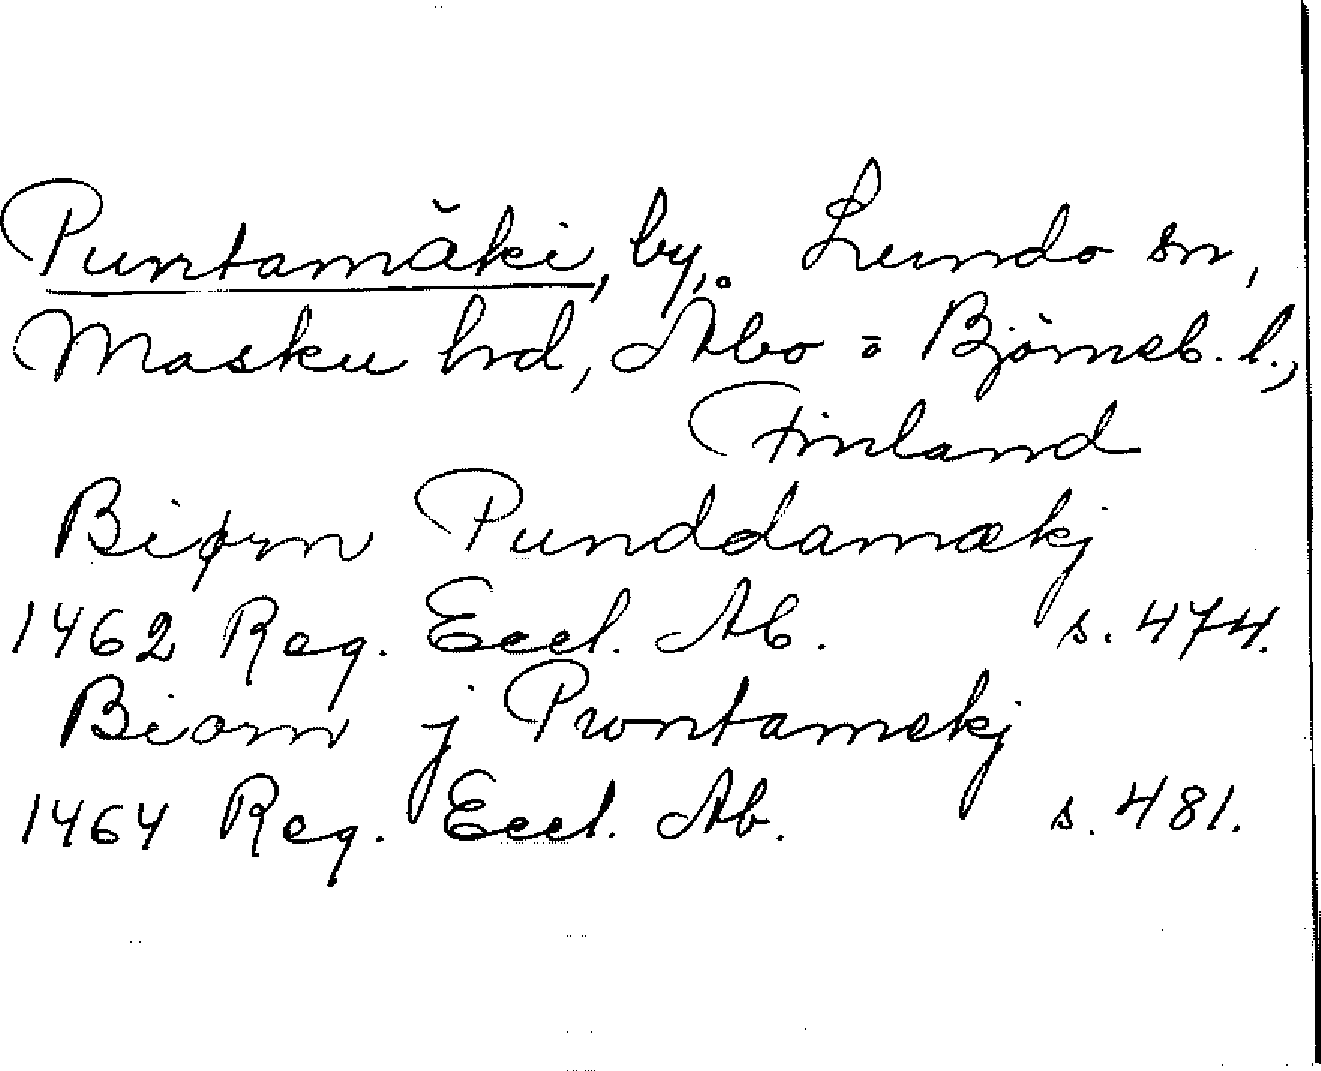 Puntamäki, by, Lundo sn,
Masku hrd, Åbo = Björneb. l.,
Finland
Biørn Punddamækj
1462 Reg. Eccl. Ab. s. 474.
Biorn j Pwntamekj
1464 Reg. Eccl. Ab. s. 481.